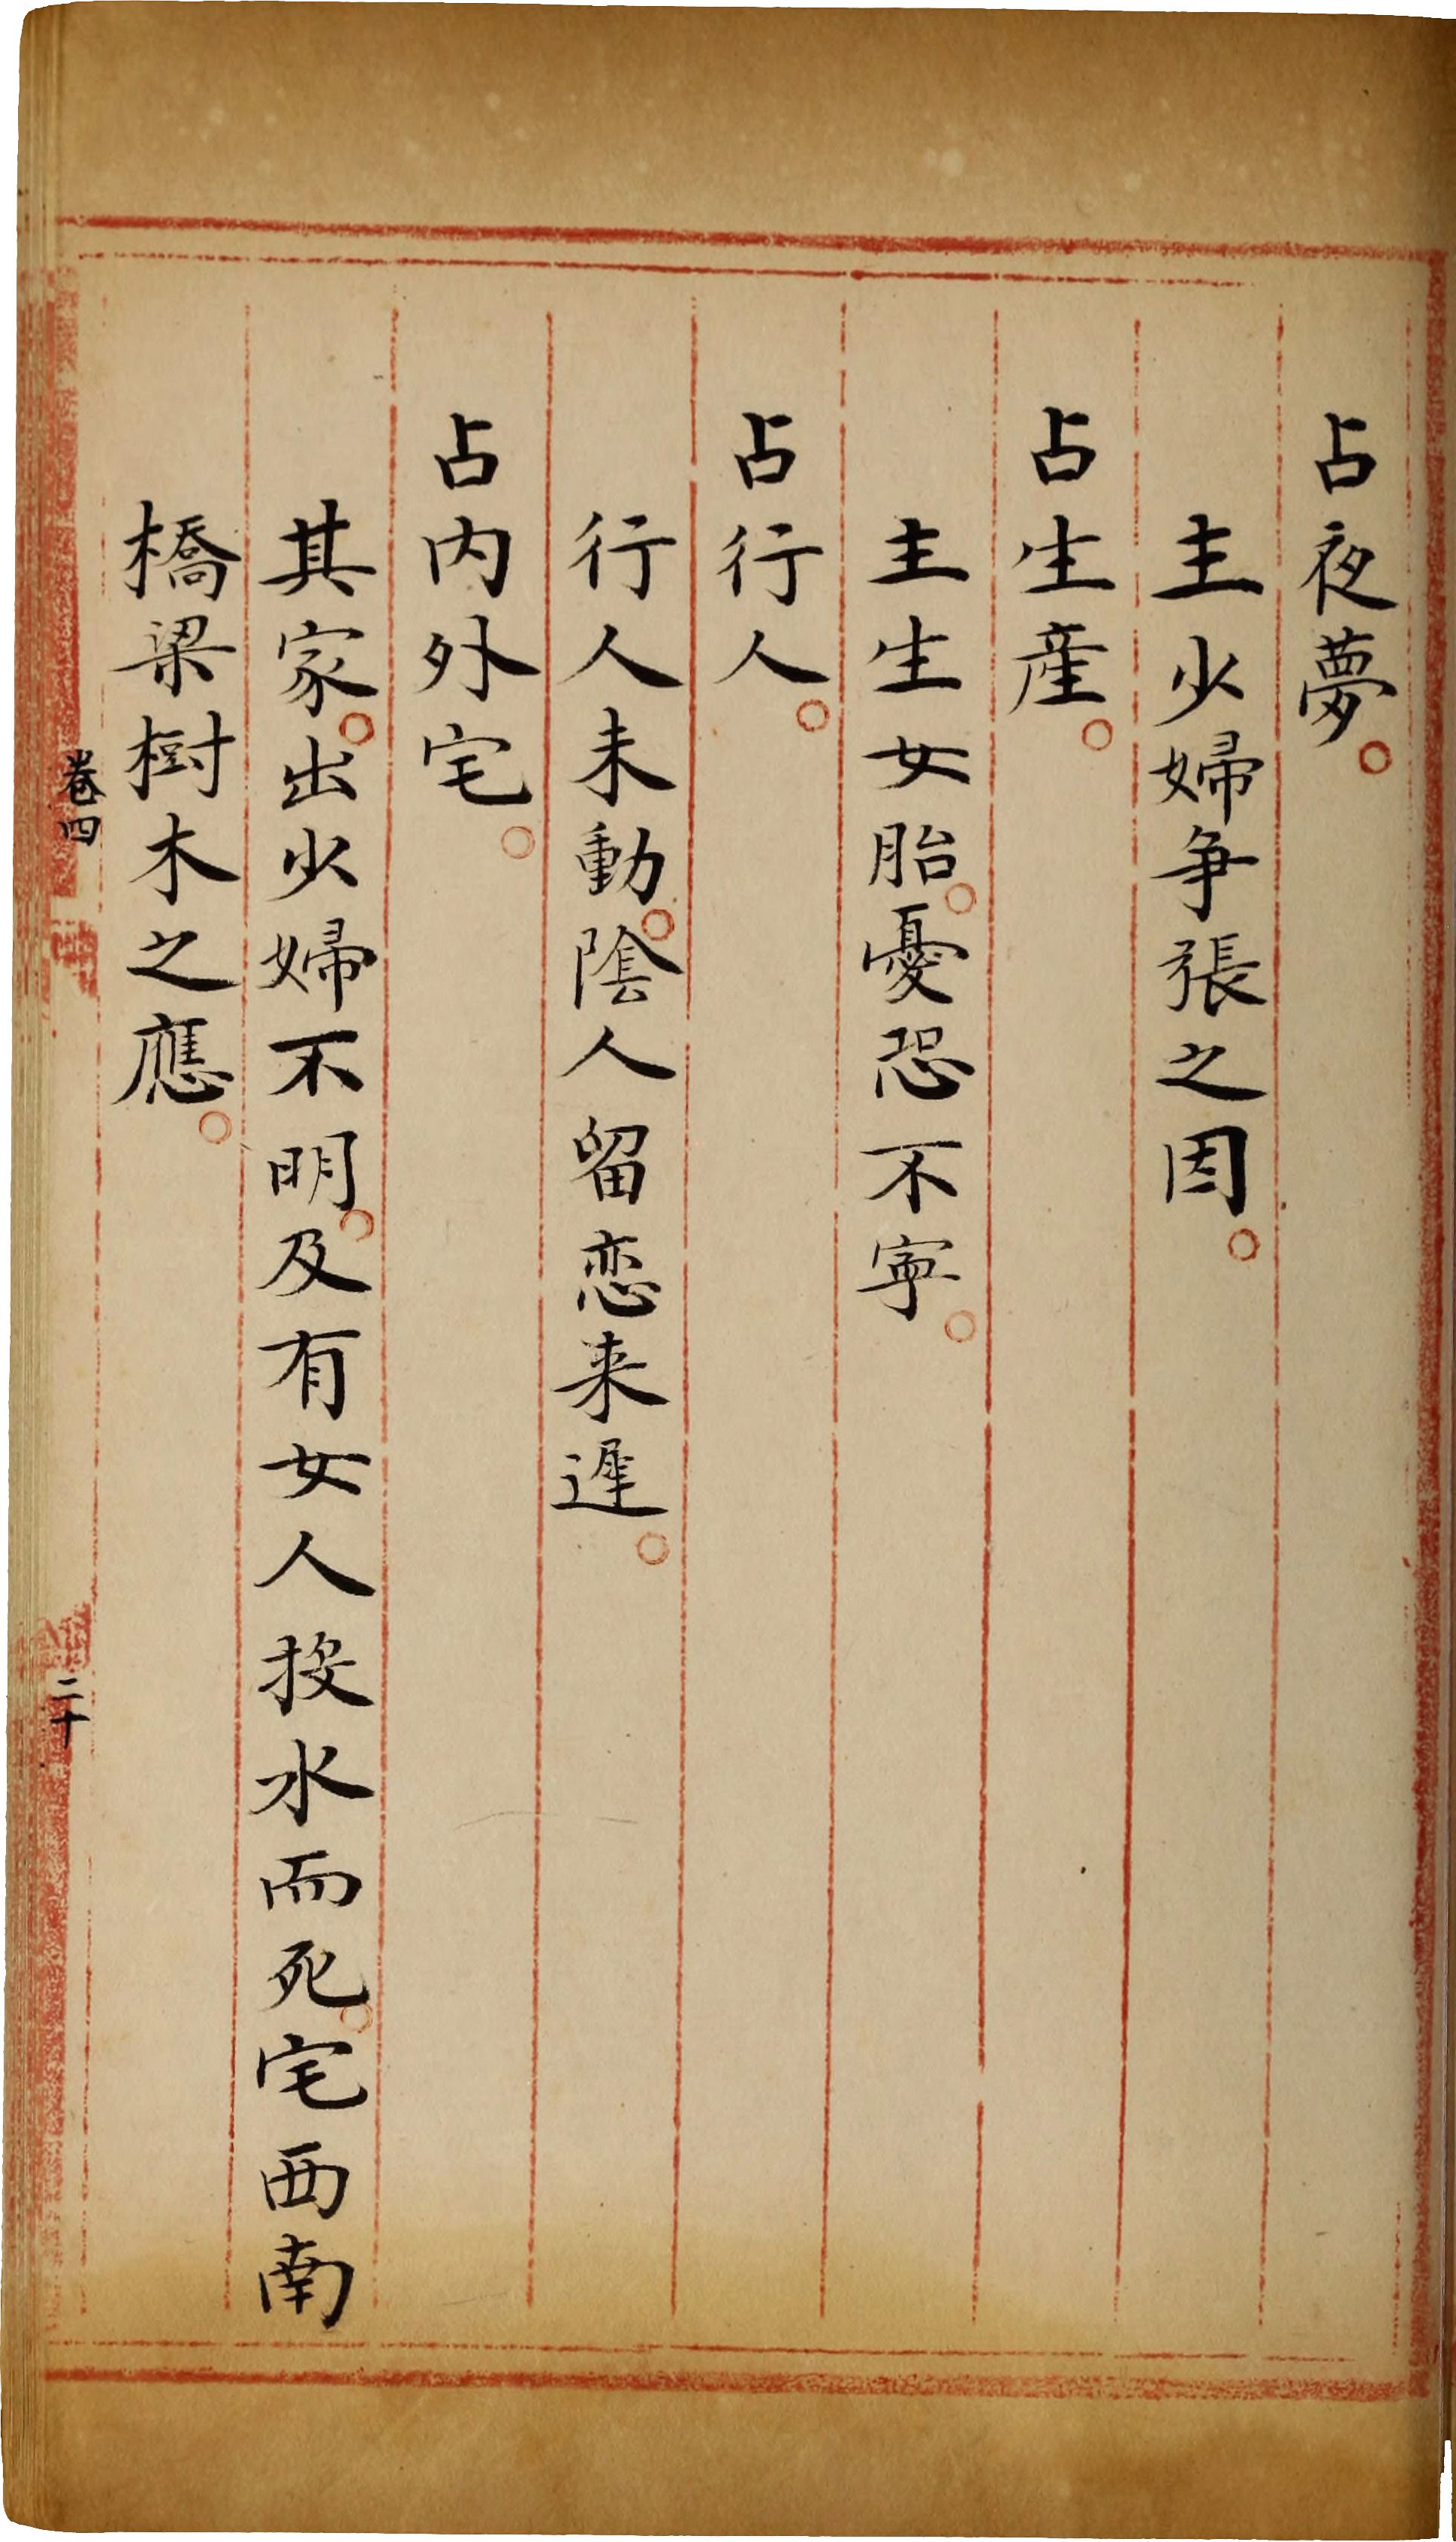 占夜夢。
主少婦争張之因。
占生產。
主生女胎。憂恐不寕。
占行人。
行人未動。隂人留恋来遲。
占内外宅。
其家。出少婦不明。及有女人投水而死。宅西南
橋梁樹木之應。
卷四
二十